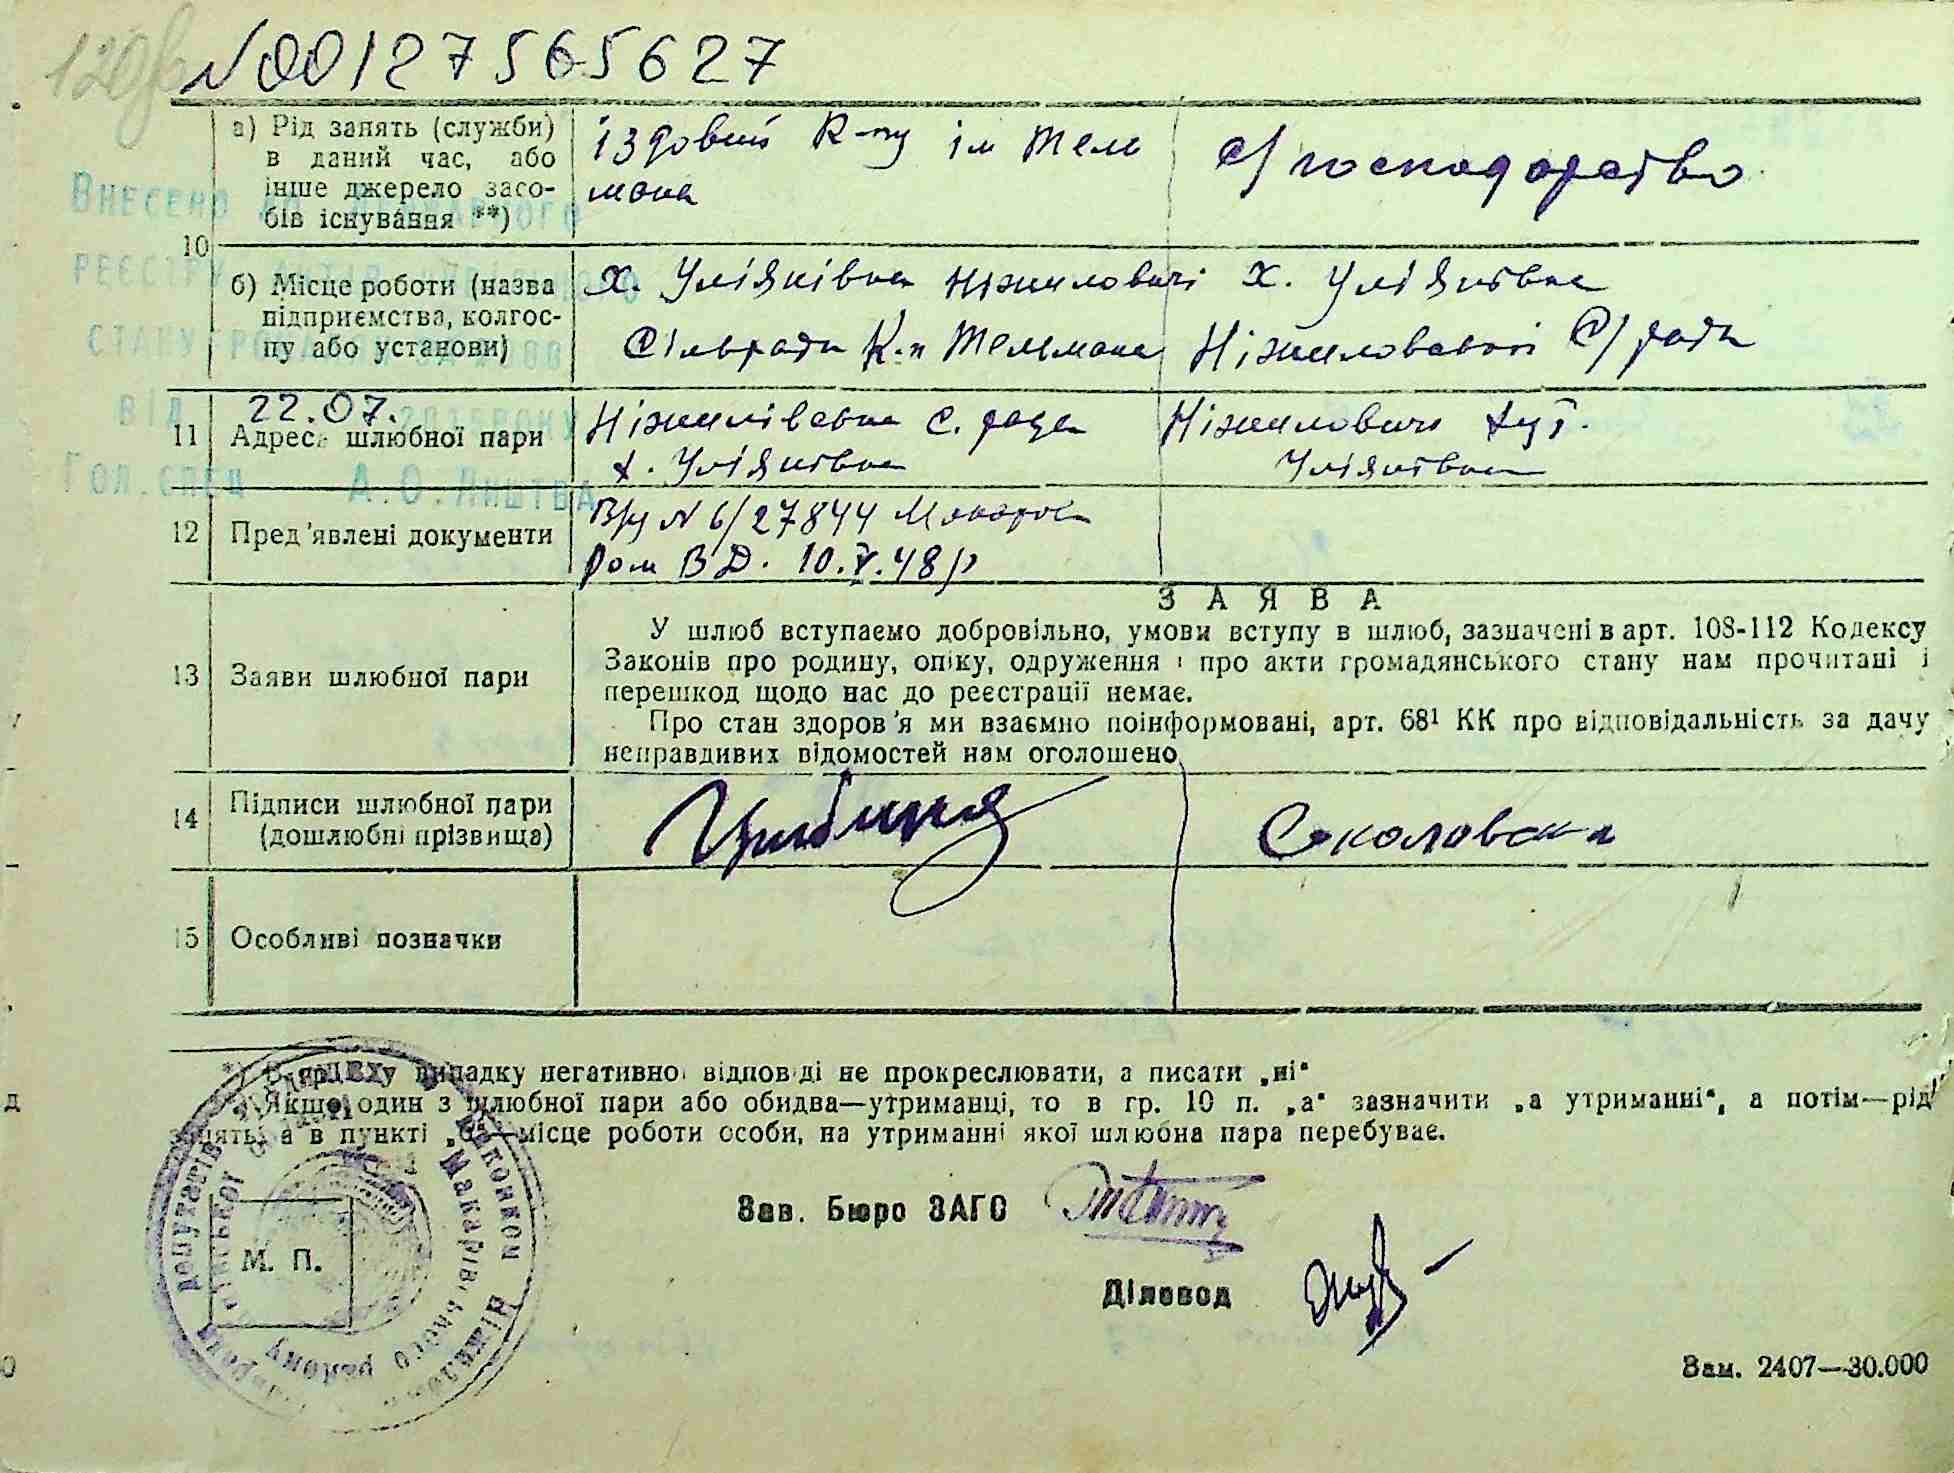 120зв
N00127565627
а) Рід занять (служби) в даний час, або інше джерело засобів існування **)
їздовий к-пу ім Тель
мана
с/господарство
10
б) Місце роботи (назва підприємства, колгоспу або установи)
х. Уліянівка Ніжиловичі
сільради к-п Тельмана
х. Уліянівка
Ніжиловської с/ради
11
22.07.
Адреса шлюбної пари
Ніжилівська с. рада
х. Уліянівка
Ніжиловичі хут.
Уліянівка
12
Пред'явлені документи
N 6/27844
ВД. 10.V.48р
13
Заяви шлюбної пари
ЗАЯВА
У шлюб вступаємо добровільно, умови вступу в шлюб, зазначені в арт. 108-112 Кодексу
Законів про родину, опіку, одруження і про акти громадянського стану нам прочитані і
перешкод щодо нас до реєстрації немає.
Про стан здоров'я ми взаємно поінформовані, арт. 68¹ КК про відповідальність за дачу
неправдивих відомостей нам оголошено
14
Підписи шлюбної пари
(дошлюбні прізвища)
Соколовська
15
Особливі позначки
Внесено до Державного
реєстру
стану
від
Гол.спец А.О.Лиштва
*) В разі випадку негативної відповіді не прокреслювати, а писати „ні“
**) Якщо один з шлюбної пари або обидва—утриманці, то в гр. 10 п. „а“ зазначити „а утриманні“, а потім—рід
занять, а в пункті „б“—місце роботи особи, на утриманні якої шлюбна пара перебуває.
Зав. Бюро ЗАГС
М. П.
Діловод
Макарівського району
депутатів
Зам. 2407—30.000